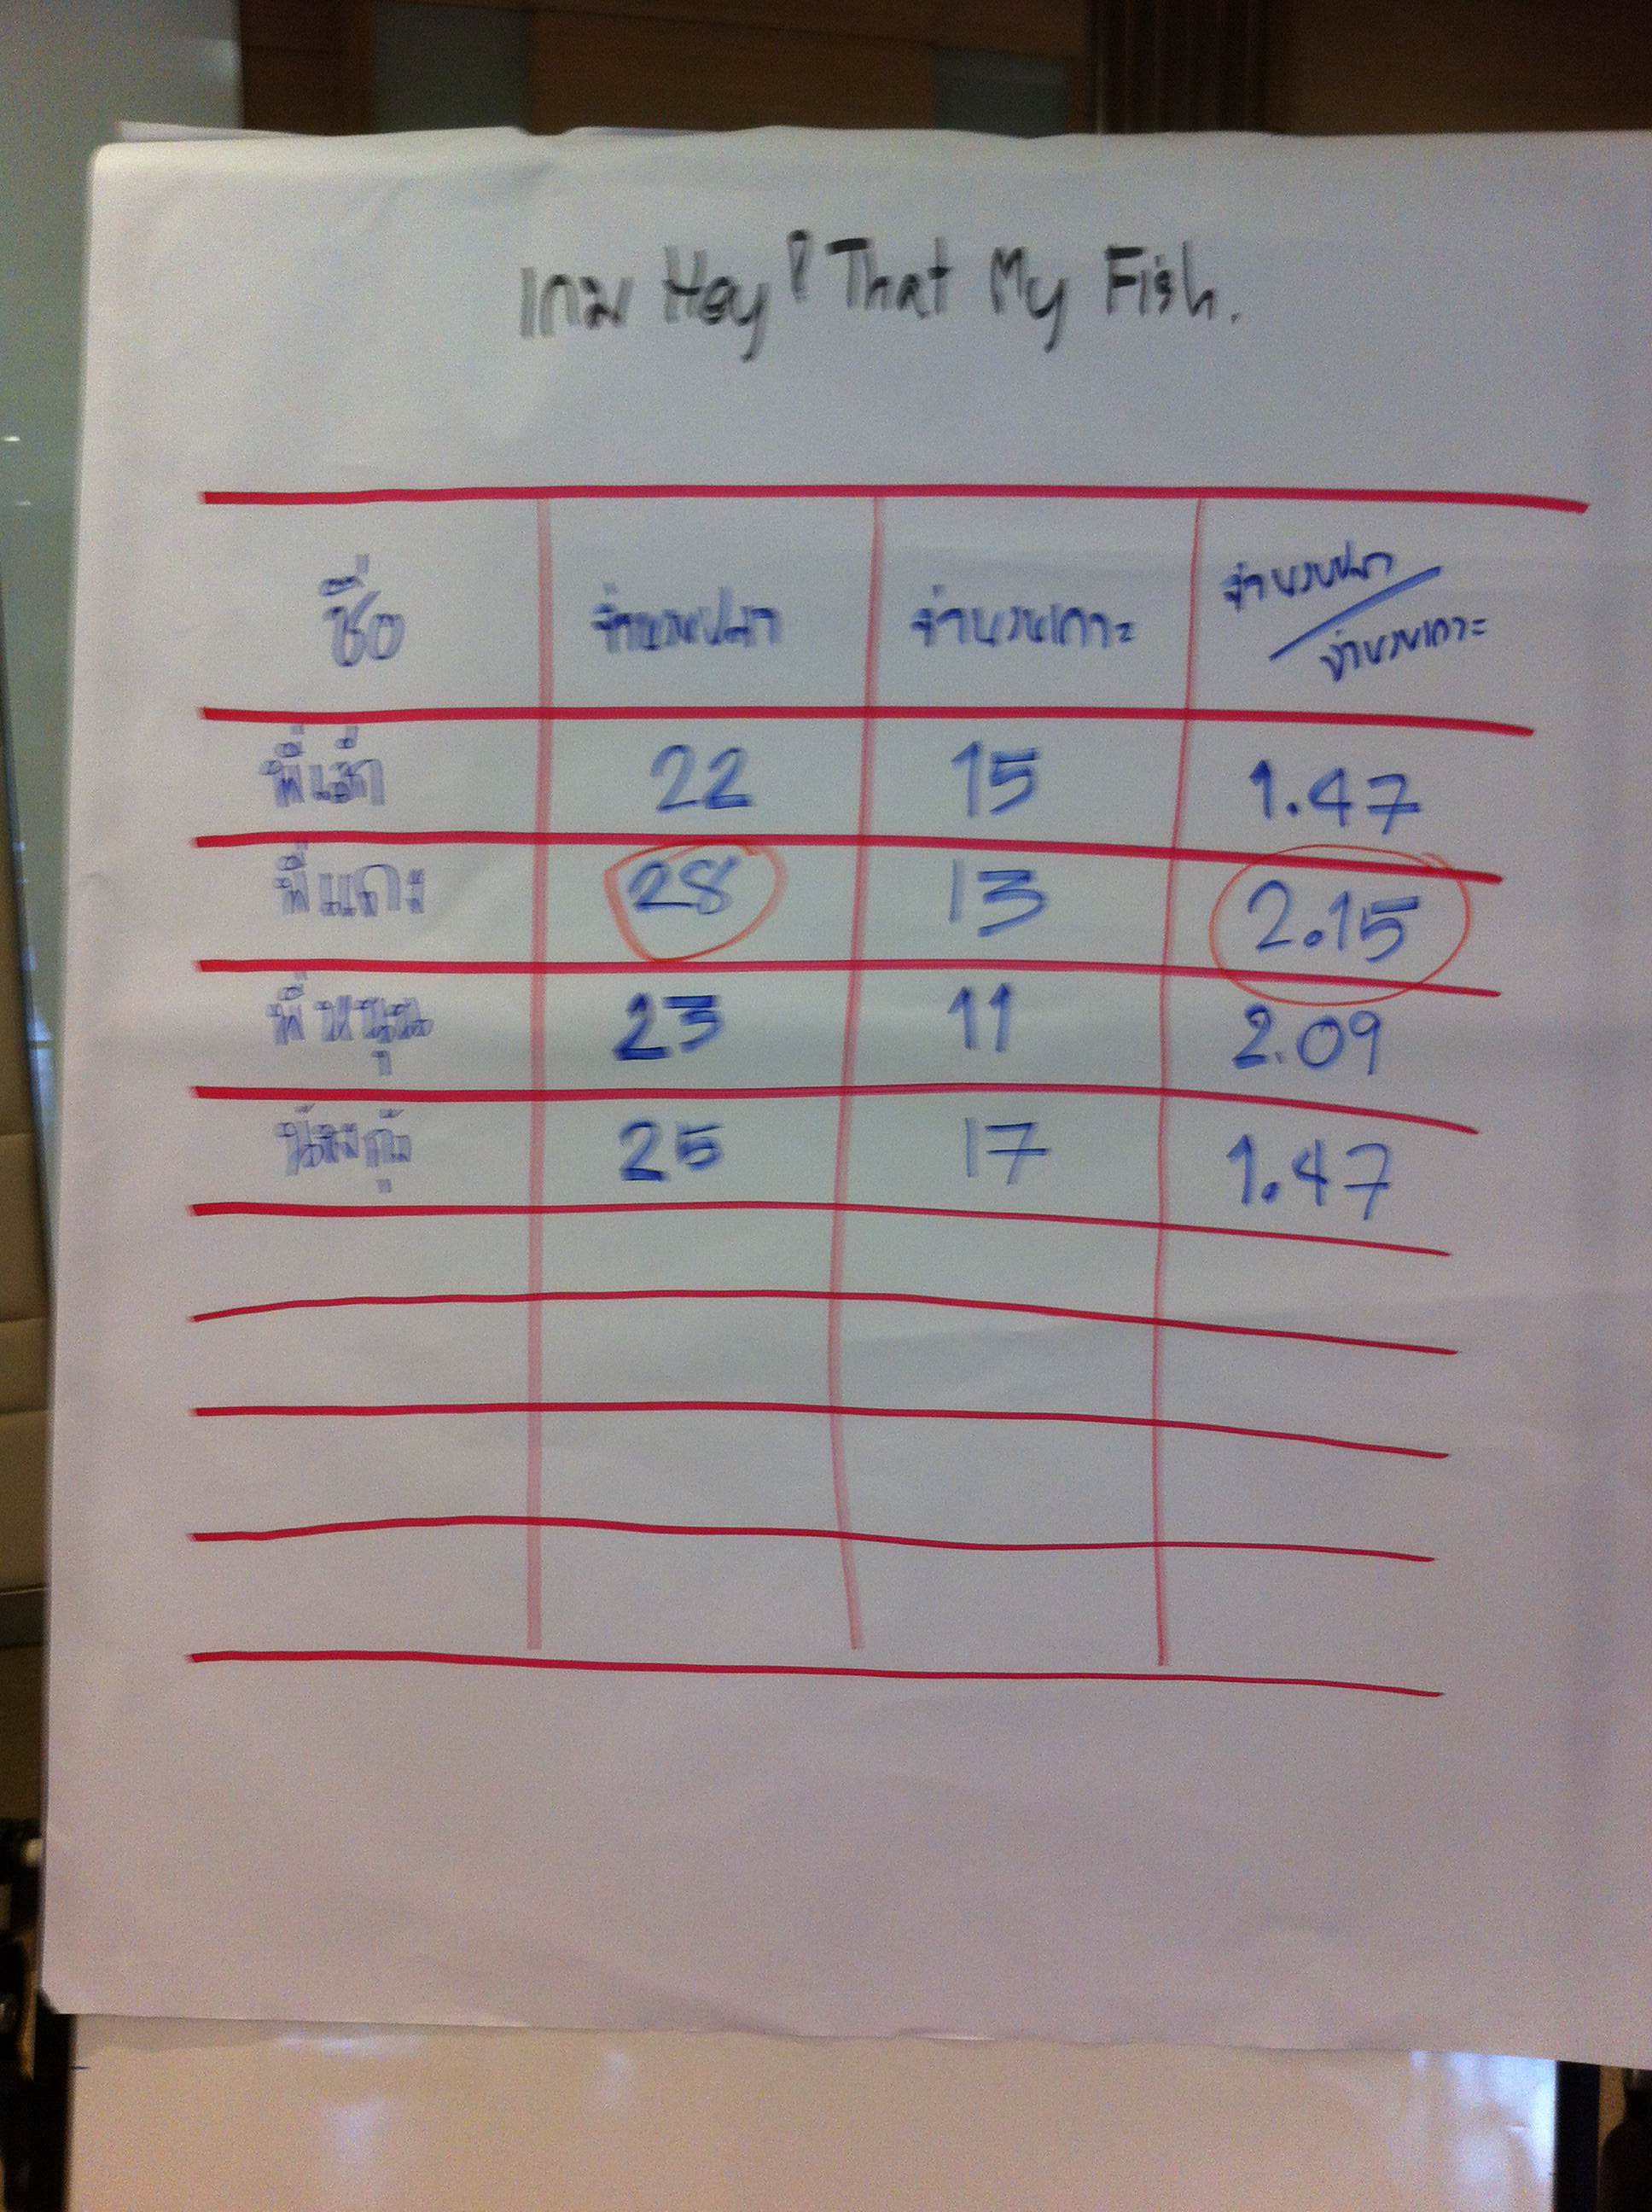 เกม Hey! That My Fish.
ชื่อ จำนวนปลา จำนวนเกาะ จำนวนปลา/จำนวนเกาะ
22 15 1.47
พี่แดง 28 13 2.15
พี่หนุน 23 11 2.09
น้องกุ้ 25 17 1.47